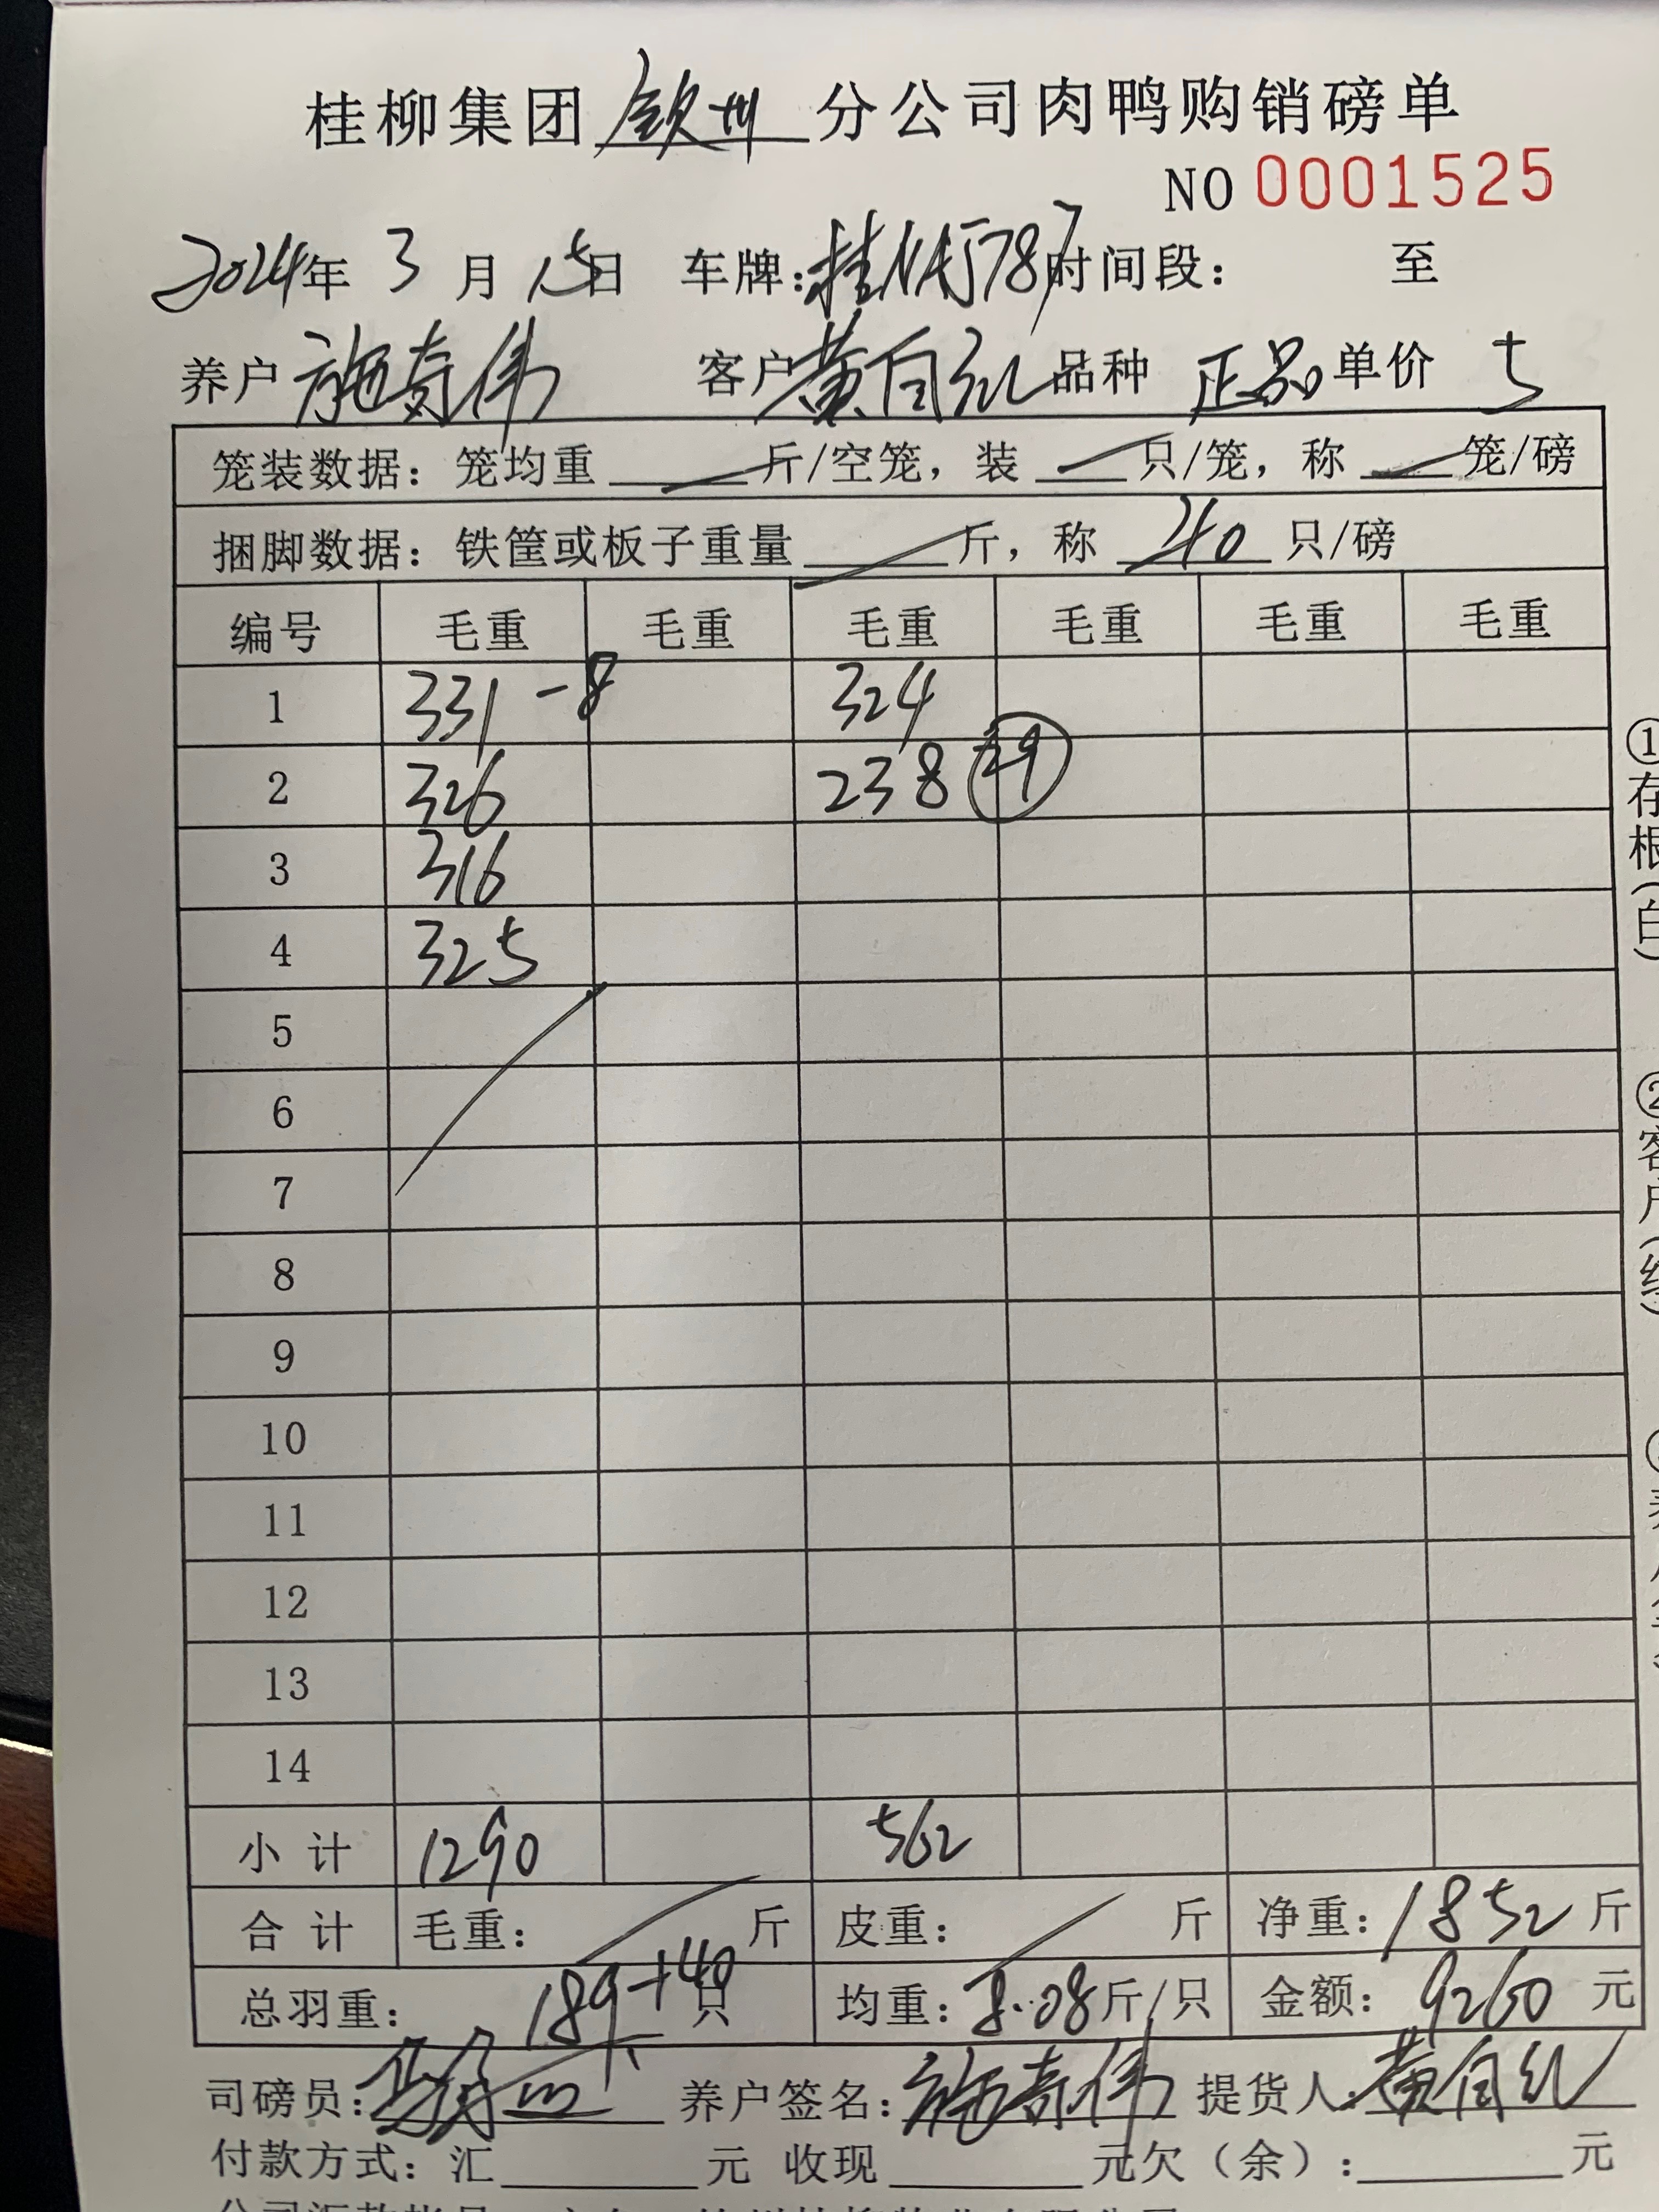 桂柳集团 钦州 分公司肉鸭购销磅单
NO 0001525
2024年 3 月 15日 车牌: 时间段: 至
养户 施奇伟 客户 黄自红 品种 正品 单价 5
笼装数据: 笼均重 斤/空笼, 装 只/笼, 称 笼/磅
捆脚数据: 铁筐或板子重量 斤, 称 40 只/磅
编号 毛重 毛重 毛重 毛重 毛重 毛重
1 331 -8 324
2 326 238 29
3 316
4 325
5
6
7
8
9
10
11
12
13
14
小计 1290 562
合计 毛重: 斤 皮重: 斤 净重: 1852 斤
总羽重: 189+40 只 均重: 8.08 斤/只 金额: 9260 元
司磅员: 养户签名: 施奇伟 提货人: 黄自红
付款方式: 汇 元 收现 元 欠(余): 元
①存根(白)
②客户(红)